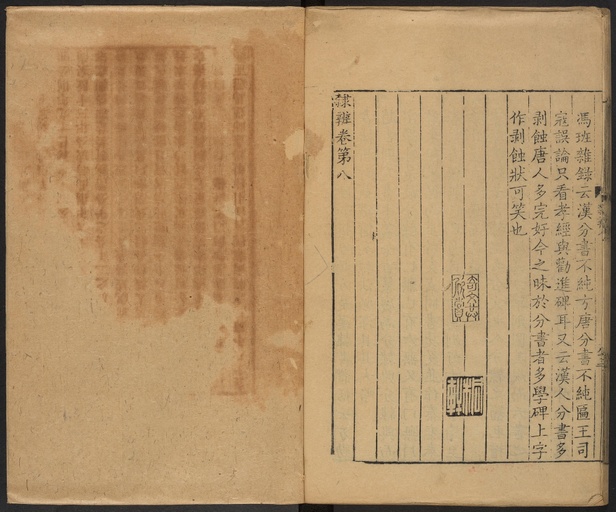 馮班雜錄云漢分書不純方唐分書不純匾王司
寇誤論只看孝經與勸進碑耳又云漢人分書多
剥蝕唐人多完好今之昧於分書者多學碑上字
作剥蝕狀可笑也
隸辨卷第八